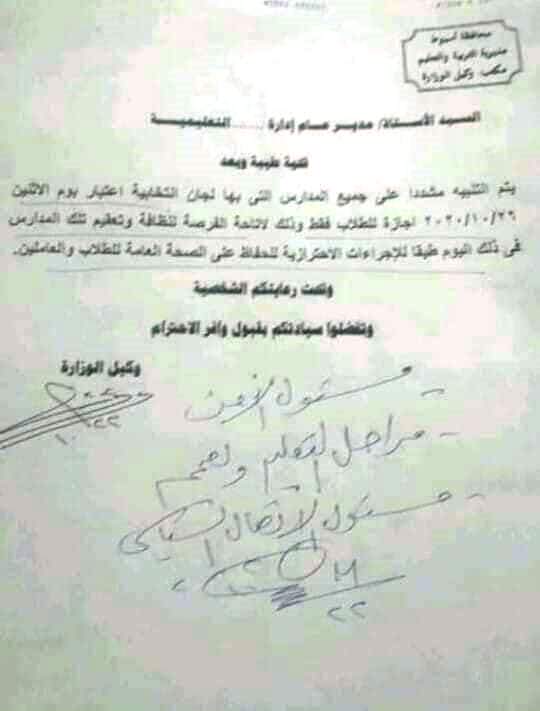 محافظة أسيوط
مديرية التربية والتعليم
مكتب وكيل الوزارة
السيد الأستاذ/ مدير عام إدارة ........ التعليمية
تحية طيبة وبعد
يتم التنبيه مشددا على جميع المدارس التى بها لجان انتخابية اعتبار يوم الاثنين
٢٠٢٠/١٠/٢٦ اجازة للطلاب فقط وذلك لاتاحة الفرصة للنظافة وتعقيم تلك المدارس
فى ذلك اليوم طبقا للإجراءات الاحترازية للحفاظ على الصحة العامة للطلاب والعاملين.
وتحت رعايتكم الشخصية
وتفضلوا سيادتكم بقبول وافر الاحترام
وكيل الوزارة
- مسئول الأمن
- مراحل التعليم
- مسئول الاتصال السياسى
٢٢